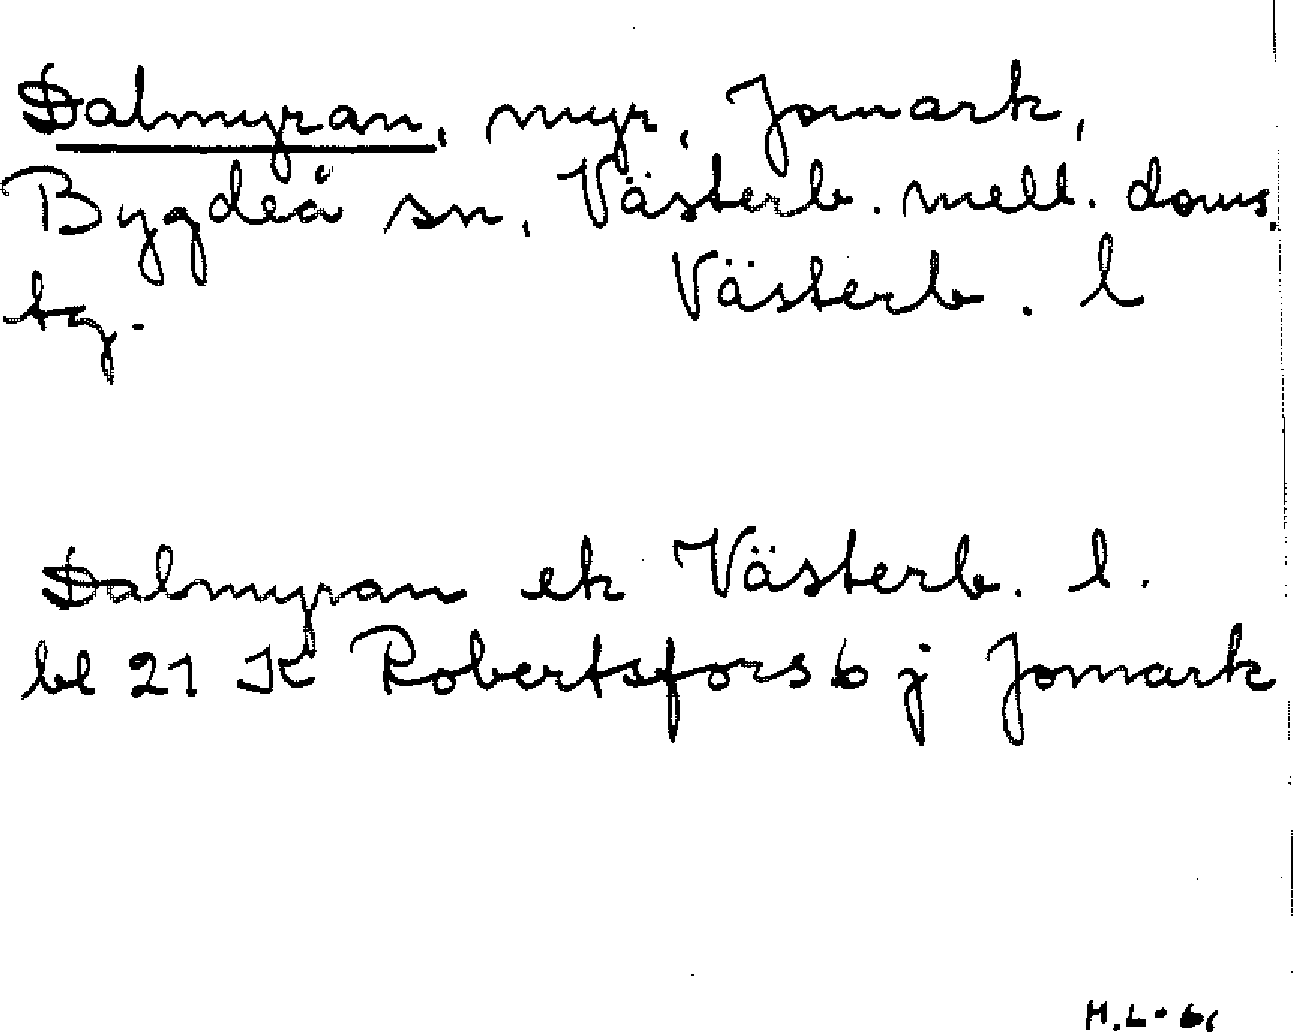 Dalmyran, myr, Jomark,
Bygdeå sn, Västerb. mell. doms.
tg. Västerb. l
Dalmyran ek Västerb. l.
bl 21 K Robertsfors b j Jomark
H.L.